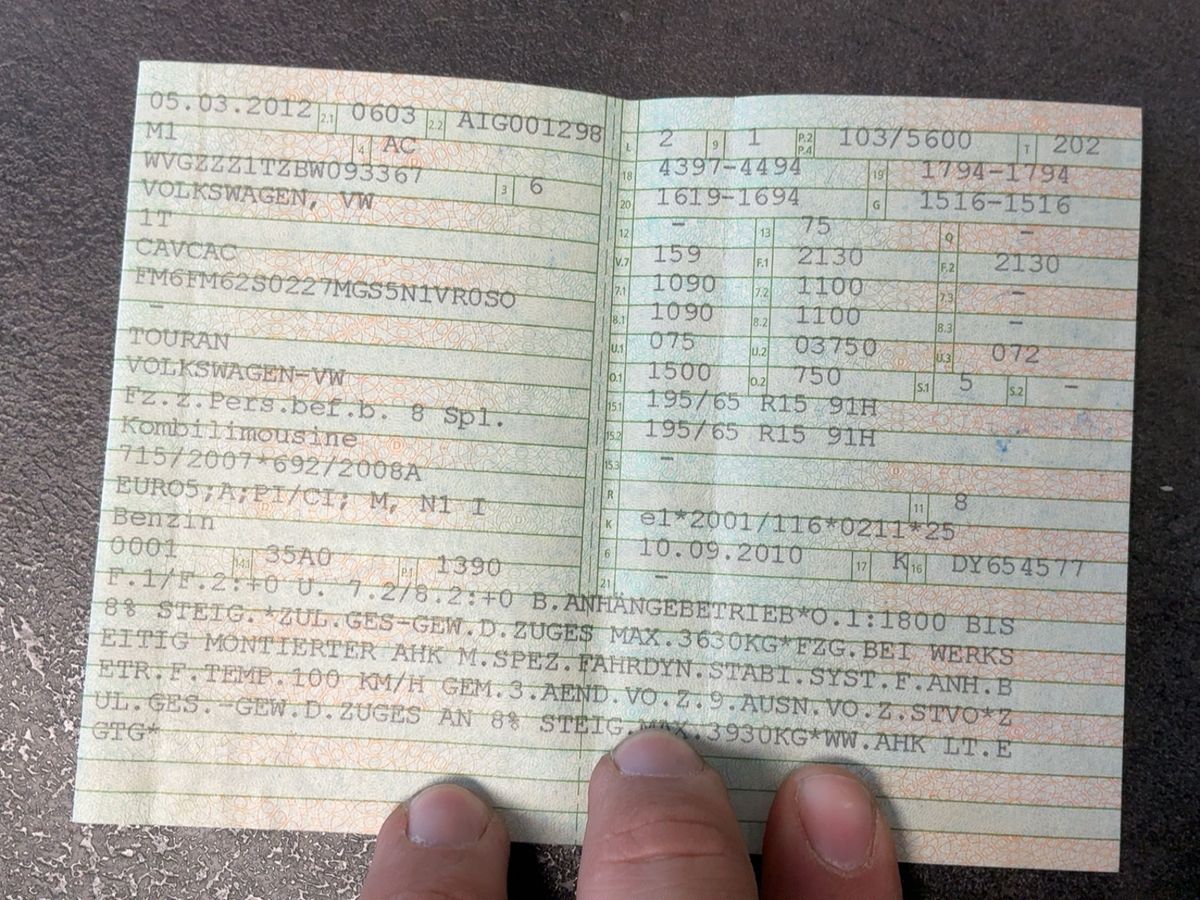 05.03.2012 2.1 0603 2.2 AIG001298
M1 4 AC
WVGZZZ1TZBW093367 3 6
VOLKSWAGEN, VW
1T
CAVCAC
FM6FM62S0227MGS5N1VR0SO
-
TOURAN
VOLKSWAGEN-VW
Fz.z.Pers.bef.b. 8 Spl.
Kombilimousine
715/2007*692/2008A
EURO5;A;PI/CI; M, N1 I
Benzin
0001 14.1 35A0 P.1 1390
L 2 9 1 P.2 P.4 103/5600 T 202
18 4397-4494 19 1794-1794
20 1619-1694 G 1516-1516
12 - 13 75 Q -
V.7 159 F.1 2130 F.2 2130
7.1 1090 7.2 1100 7.3 -
8.1 1090 8.2 1100 8.3 -
U.1 075 U.2 03750 U.3 072
O.1 1500 O.2 750 S.1 5 S.2 -
15.1 195/65 R15 91H
15.2 195/65 R15 91H
15.3 -
R 11 8
K e1*2001/116*0211*25
6 10.09.2010 17 K 16 DY654577
21 -
F.1/F.2:+0 U. 7.2/8.2:+0 B.ANHÄNGEBETRIEB*O.1:1800 BIS
8% STEIG.*ZUL.GES-GEW.D.ZUGES MAX.3630KG*FZG.BEI WERKS
EITIG MONTIERTER AHK M.SPEZ.FAHRDYN.STABI.SYST.F.ANH.B
ETR.F.TEMP.100 KM/H GEM.3.AEND.VO.Z.9.AUSN.VO.Z.STVO*Z
UL.GES.-GEW.D.ZUGES AN 8% STEIG.MAX.3930KG*WW.AHK LT.E
GTG*